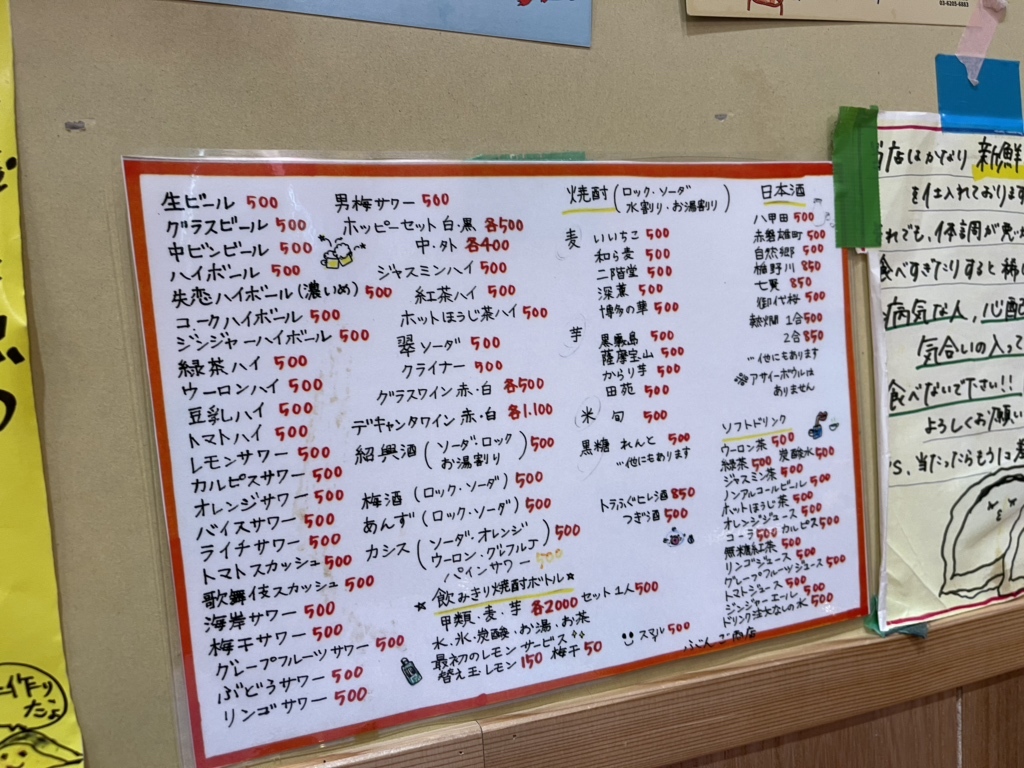 03-6205-6883
生ビール 500
グラスビール 500
中ビンビール 500
ハイボール 500
失恋ハイボール(濃いめ) 500
コークハイボール 500
ジンジャーハイボール 500
緑茶ハイ 500
ウーロンハイ 500
豆乳ハイ 500
トマトハイ 500
レモンサワー 500
カルピスサワー 500
オレンジサワー 500
バイスサワー 500
ライチサワー 500
トマトスカッシュ 500
歌舞伎スカッシュ 500
海岸サワー 500
梅干サワー 500
グレープフルーツサワー 500
ぶどうサワー 500
リンゴサワー 500
男梅サワー 500
ホッピーセット 白・黒 各500
中・外 各400
ジャスミンハイ 500
紅茶ハイ 500
ホットほうじ茶ハイ 500
翠ソーダ 500
クライナー 500
グラスワイン 赤・白 各500
デキャンタワイン 赤・白 各1.100
紹興酒(ソーダ・ロック お湯割り) 500
梅酒(ロック・ソーダ) 500
あんず(ロック・ソーダ) 500
カシス(ソーダ・オレンジ ウーロン・グレフルJ) 500
パインサワー 500
★飲みきり焼酎ボトル★
甲類・麦・芋 各2000 セット1人500
水・氷・炭酸・お湯・お茶
最初のレモンサービス
替え玉レモン150 梅干50
焼酎(ロック・ソーダ 水割り・お湯割り)
麦 いいちこ 500
和ら麦 500
二階堂 500
深薫 500
博多の華 500
芋 黒霧島 500
薩摩宝山 500
からり芋 500
田苑 500
米 旬 500
黒糖 れんと 500
※他にもあります
トラふぐヒレ酒 850
つぎ酒 500
スマイル 500
日本酒
八甲田 500
赤磐雄町 500
自然郷 500
楯野川 850
七賢 850
御代桜 500
熱燗 1合500
2合850
※他にもあります
※アサイーボウルは
ありません
ソフトドリンク
ウーロン茶 500
緑茶 500 炭酸水 500
ジャスミン茶 500
ノンアルコールビール 500
ホットほうじ茶 500
オレンジジュース 500
コーラ500 カルピス500
無糖紅茶 500
リンゴジュース 500
グレープフルーツジュース 500
トマトジュース 500
ジンジャーエール 500
ドリンク注文なしの水 500
ぶんご商店
店はかなり新鮮
を仕入れております
れでも、体調が
食べすぎたりすると稀
病気な人、心配
気合いの入って
食べないで下さい!!
よろしくお願い
s. 当たったらもうに
作り
たよ